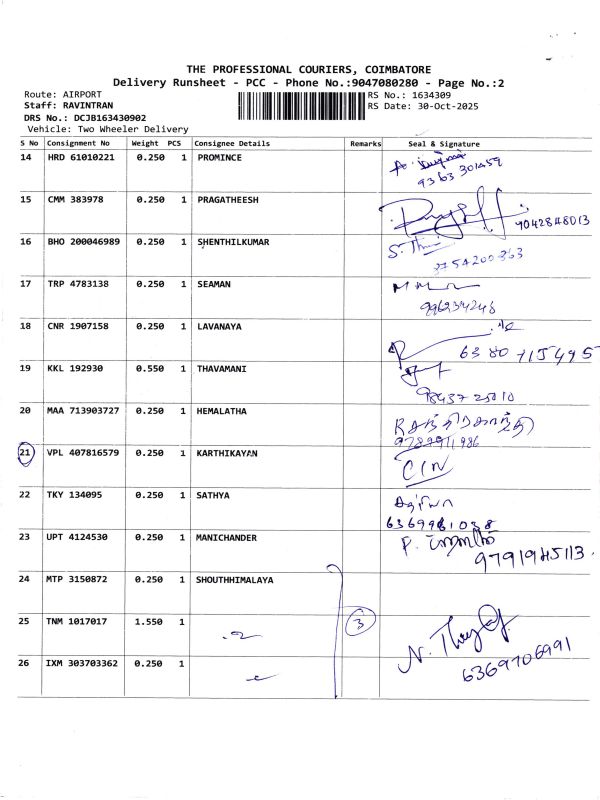 THE PROFESSIONAL COURIERS, COIMBATORE
Delivery Runsheet - PCC - Phone No.:9047080280 - Page No.:2
Route: AIRPORT
RS No.: 1634309
Staff: RAVINTRAN
RS Date: 30-Oct-2025
DRS No.: DCJB163430902
Vehicle: Two Wheeler Delivery
S No Consignment No Weight PCS Consignee Details Remarks Seal & Signature
14 HRD 61010221 0.250 1 PROMINCE
9363301459
15 CMM 383978 0.250 1 PRAGATHEESH
9042848013
16 BHO 200046989 0.250 1 SHENTHILKUMAR
17 TRP 4783138 0.250 1 SEAMAN
18 CNR 1907158 0.250 1 LAVANAYA
6380 715495
19 KKL 192930 0.550 1 THAVAMANI
98437 25010
20 MAA 713903727 0.250 1 HEMALATHA
9789911986
21 VPL 407816579 0.250 1 KARTHIKAYAN
C/N
22 TKY 134095 0.250 1 SATHYA
6369981038
23 UPT 4124530 0.250 1 MANICHANDER
9791945113
24 MTP 3150872 0.250 1 SHOUTHHIMALAYA
25 TNM 1017017 1.550 1 3
26 IXM 303703362 0.250 1
6369706991